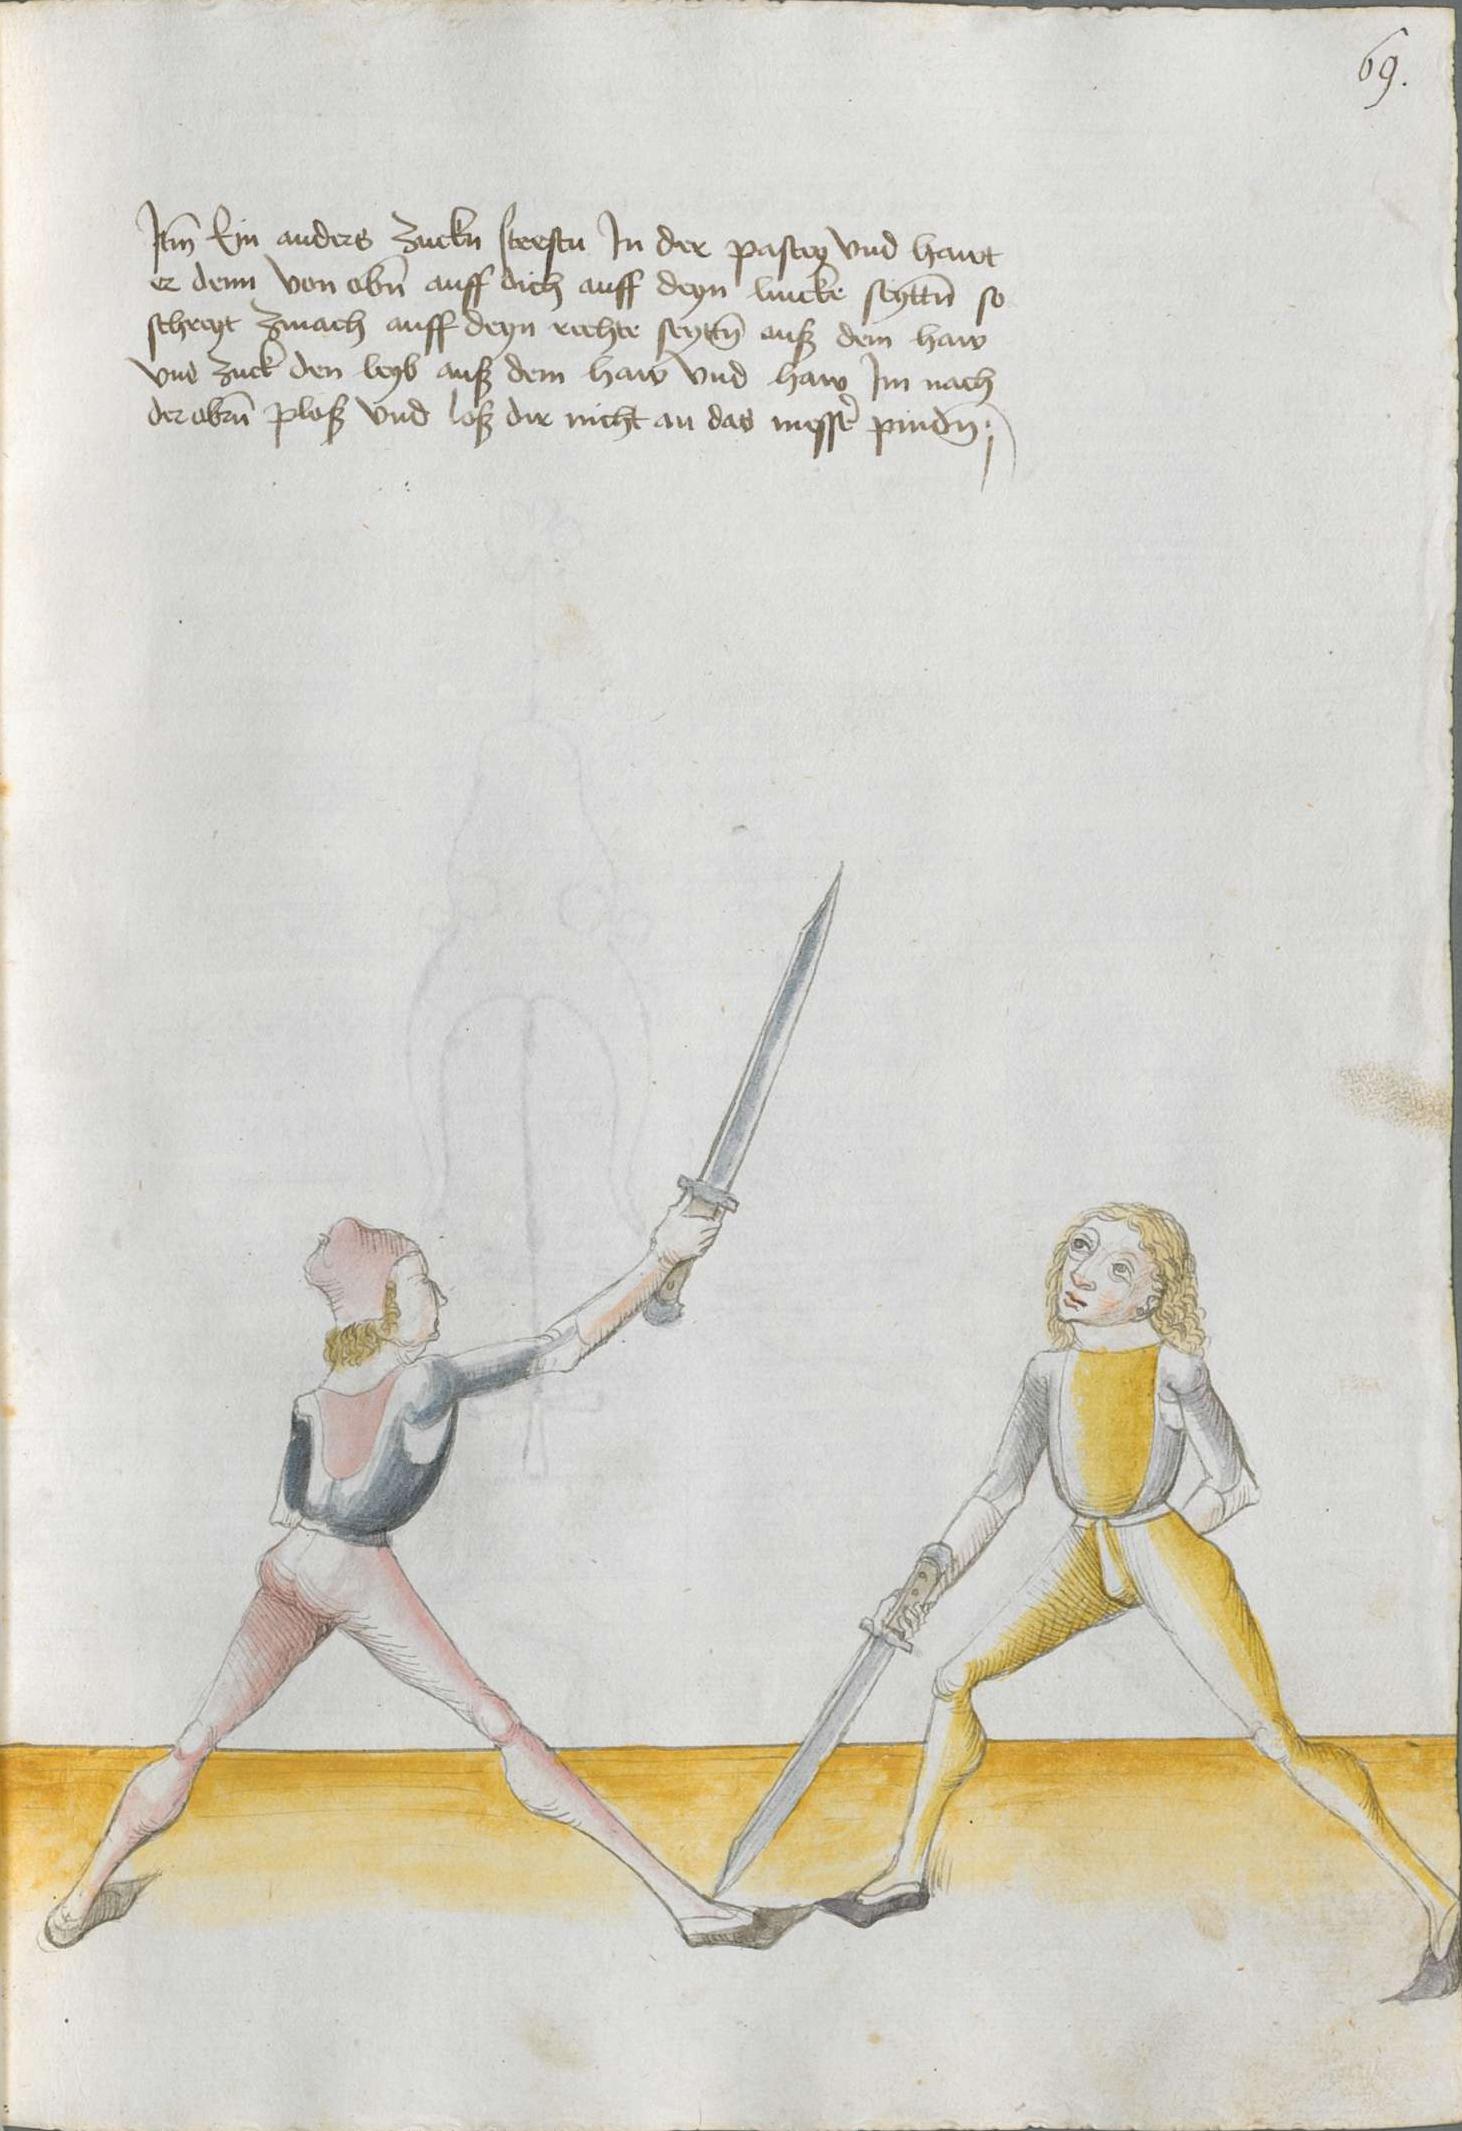 69.
Itm̄ Ein anders zuckn̄ steestu In der pastey vnd hawt
er denn von obn̄ auff dich auff deyn lincke seyttn̄ so
schreyt zwach auff deyn rechte seyttn̄ auß dem haw
vnd zuck den leyb auß dem haw vnd haw Im nach
der obrn̄ ploß vnd loß dir nicht an das messer pindn̄